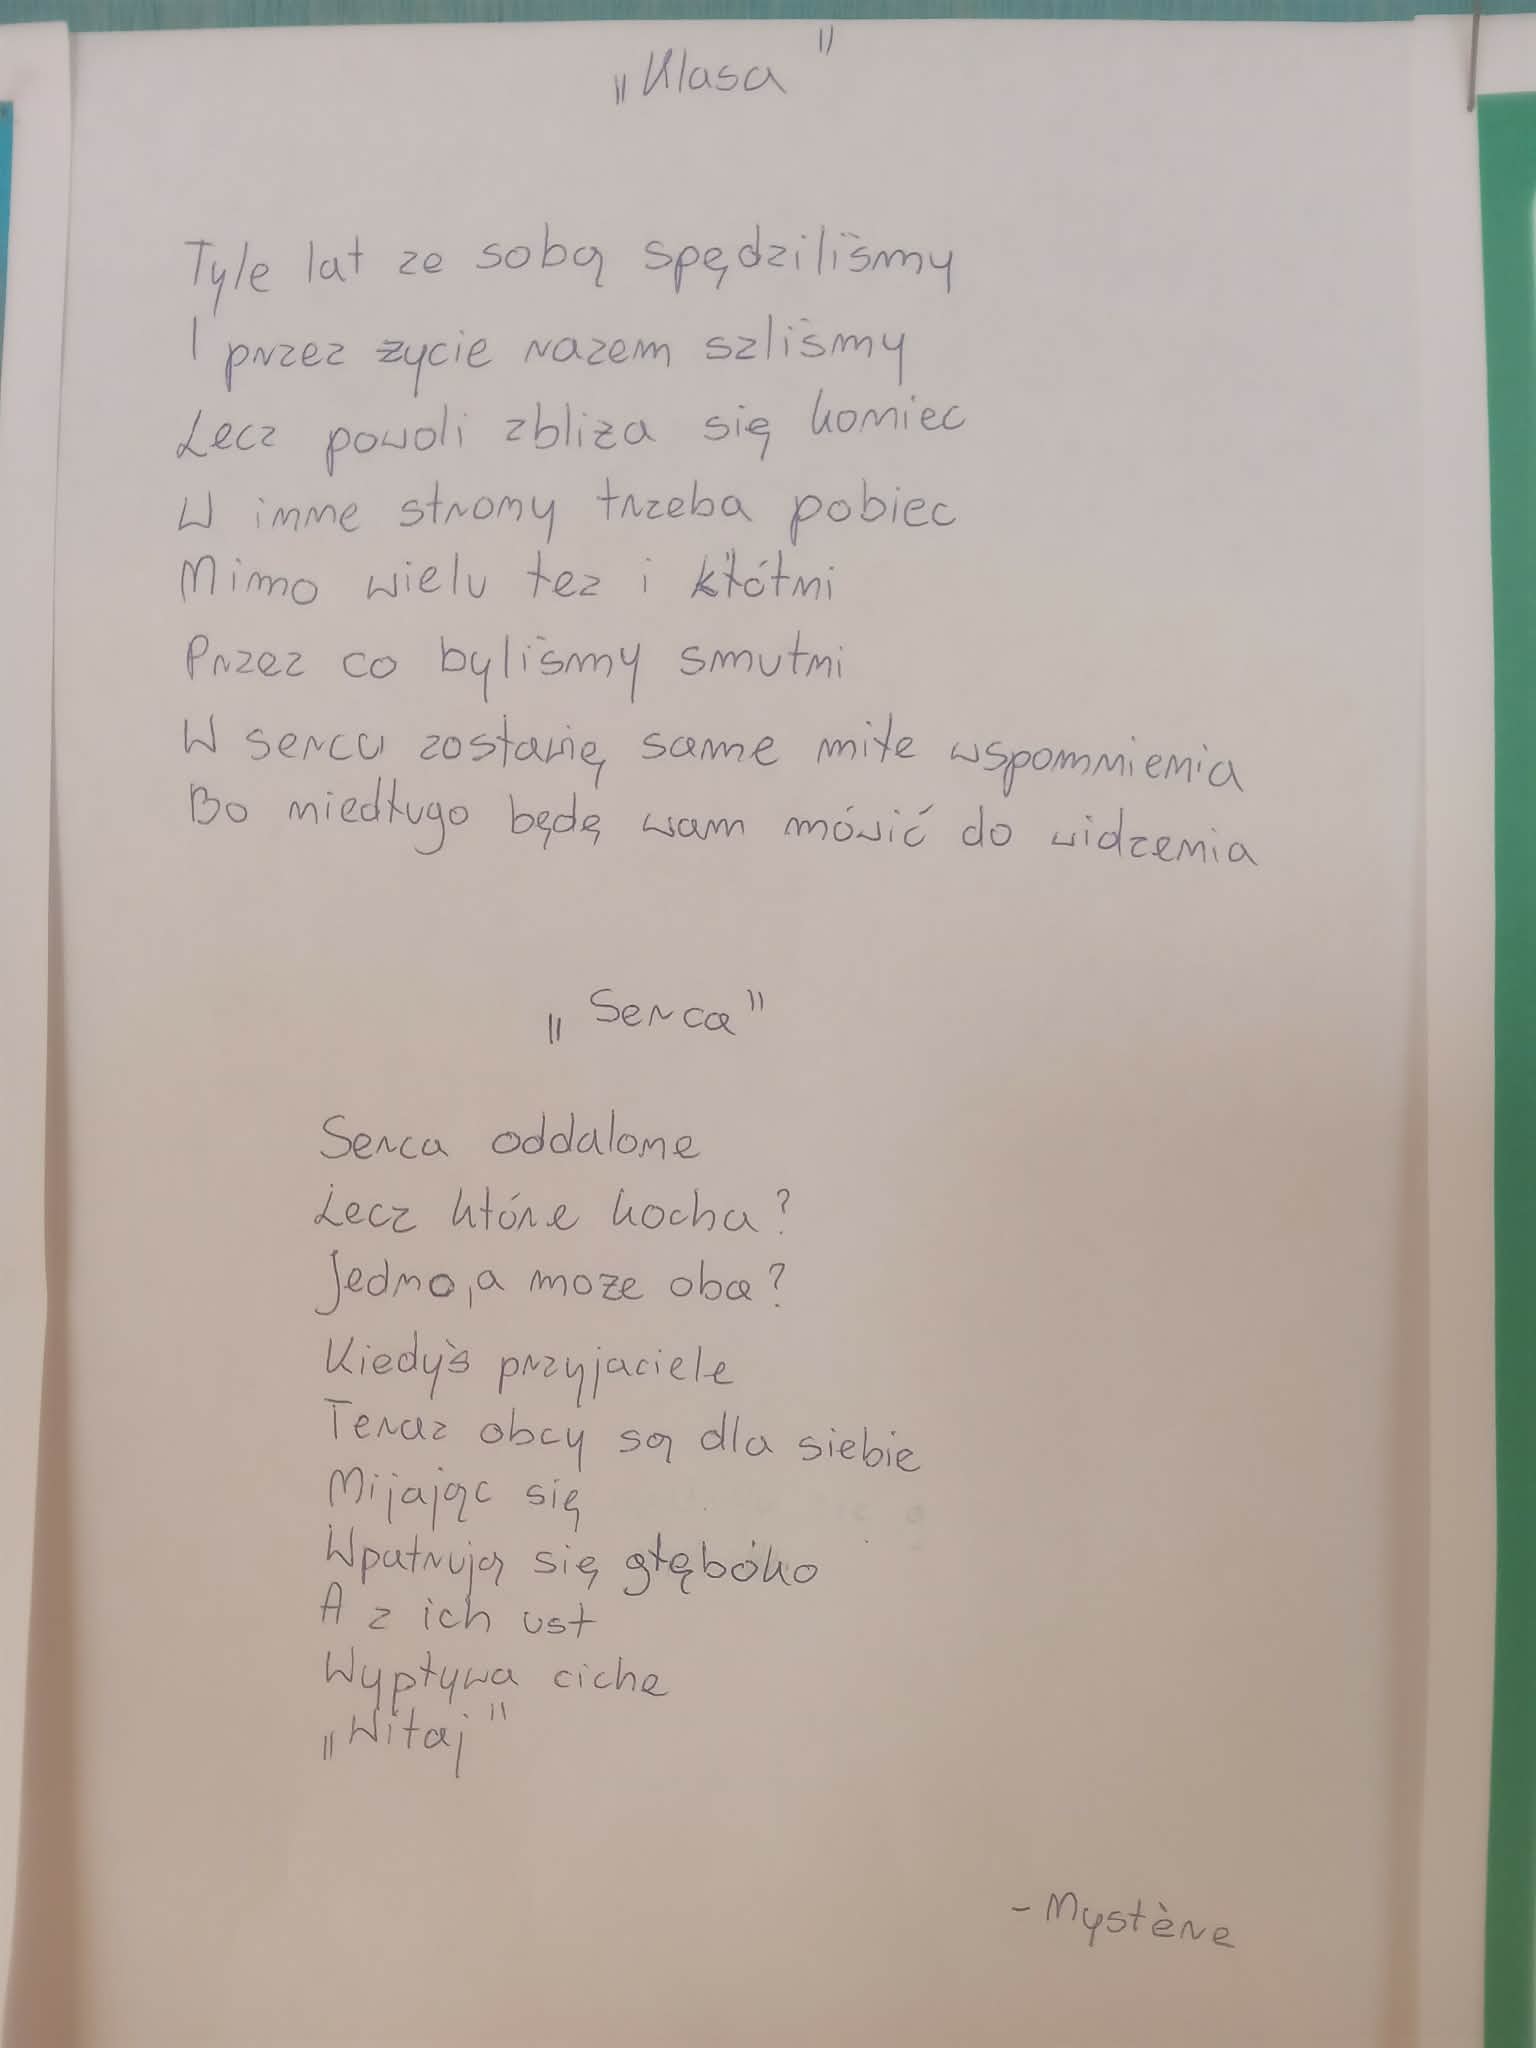 „Klasa"
Tyle lat ze sobą spędziliśmy
I przez życie razem szliśmy
Lecz powoli zbliża się koniec
W inne strony trzeba pobiec
Mimo wielu łez i kłótni
Przez co byliśmy smutni
W sercu zostawię same miłe wspomnienia
Bo niedługo będę wam mówić do widzenia
„Serca"
Serca oddalone
Lecz które kocha?
Jedno, a może oba?
Kiedyś przyjaciele
Teraz obcy są dla siebie
Mijając się
Wpatrują się głęboko
A z ich ust
Wypływa ciche
„Witaj"
- Mystère